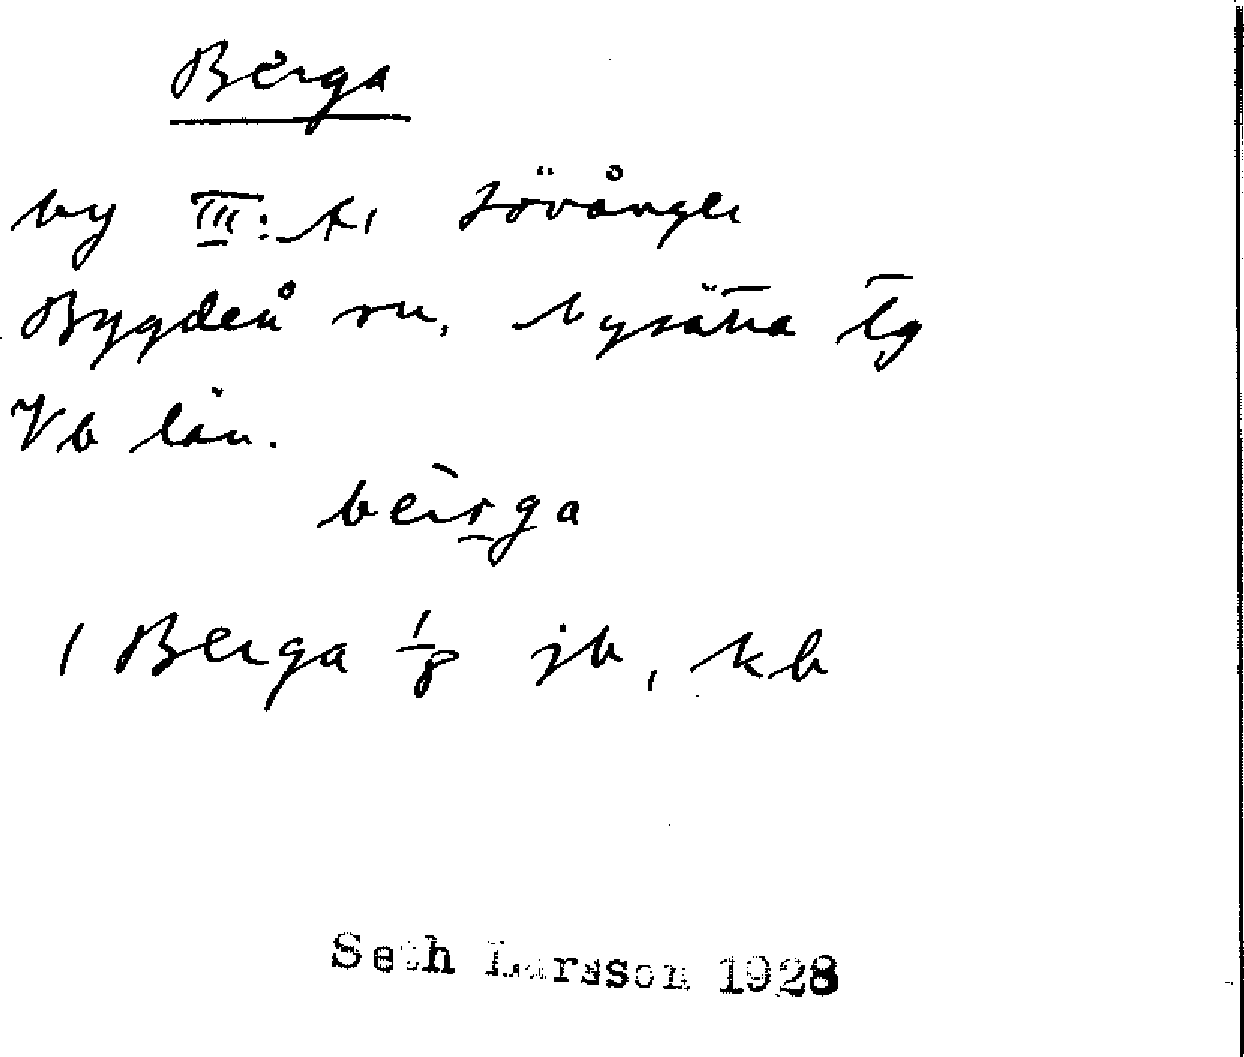 Berga
by III: A1 Lövånger
Bygdeå sn, Nysätra tg
Vb län.
berga
1 Berga 1/8 jb, kb
Seth Larsson 1928